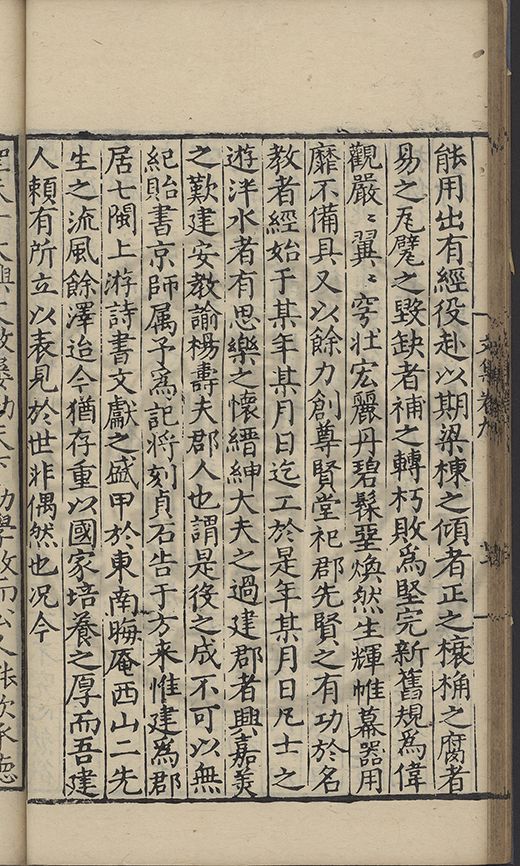 能用出有經役赴以期梁棟之傾者正之榱桷之腐者
易之瓦甓之毀缺者補之轉朽敗為堅完新舊規為偉
觀嚴〻翼〻穹壯宏麗丹碧髹堊煥然生輝帷幕器用
靡不備具又以餘力創尊賢堂祀郡先賢之有功於名
教者經始于某年某月日迄工於是年某月日凡士之
遊泮水者有思樂之懷縉紳大夫之過建郡者興嘉羙
之歎建安教諭楊壽夫郡人也謂是役之成不可以無
紀貽書京師属予為記將刻貞石告于方来惟建為郡
居七閩上游詩書文獻之盛甲於東南晦菴西山二先
生之流風餘澤迨今猶存重以國家培養之厚而吾建
人頼有所立以表見於世非偶然也况今
文集卷九